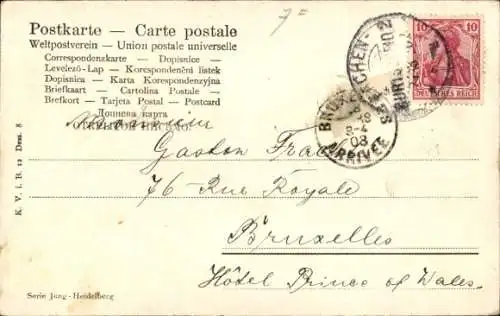 7=
Postkarte — Carte postale
Weltpostverein — Union postale universelle
Correspondenzkarte — Dopisnice —
Levelező-Lap — Korespondenční lístek
Dopisnica — Karta Korespondencyjna
Briefkaart — Cartolina Postale —
Brefkort — Tarjeta Postal — Postcard
Дописна карта
10 10
DEUTSCHES REICH
8-4
08
ARRIVÉE
Monsieur
Gaston
76 Rue Royale
Bruxelles
Hôtel Prince of Wales.
K. V. i. B. 12 Dess. 8
Serie Jung - Heidelberg